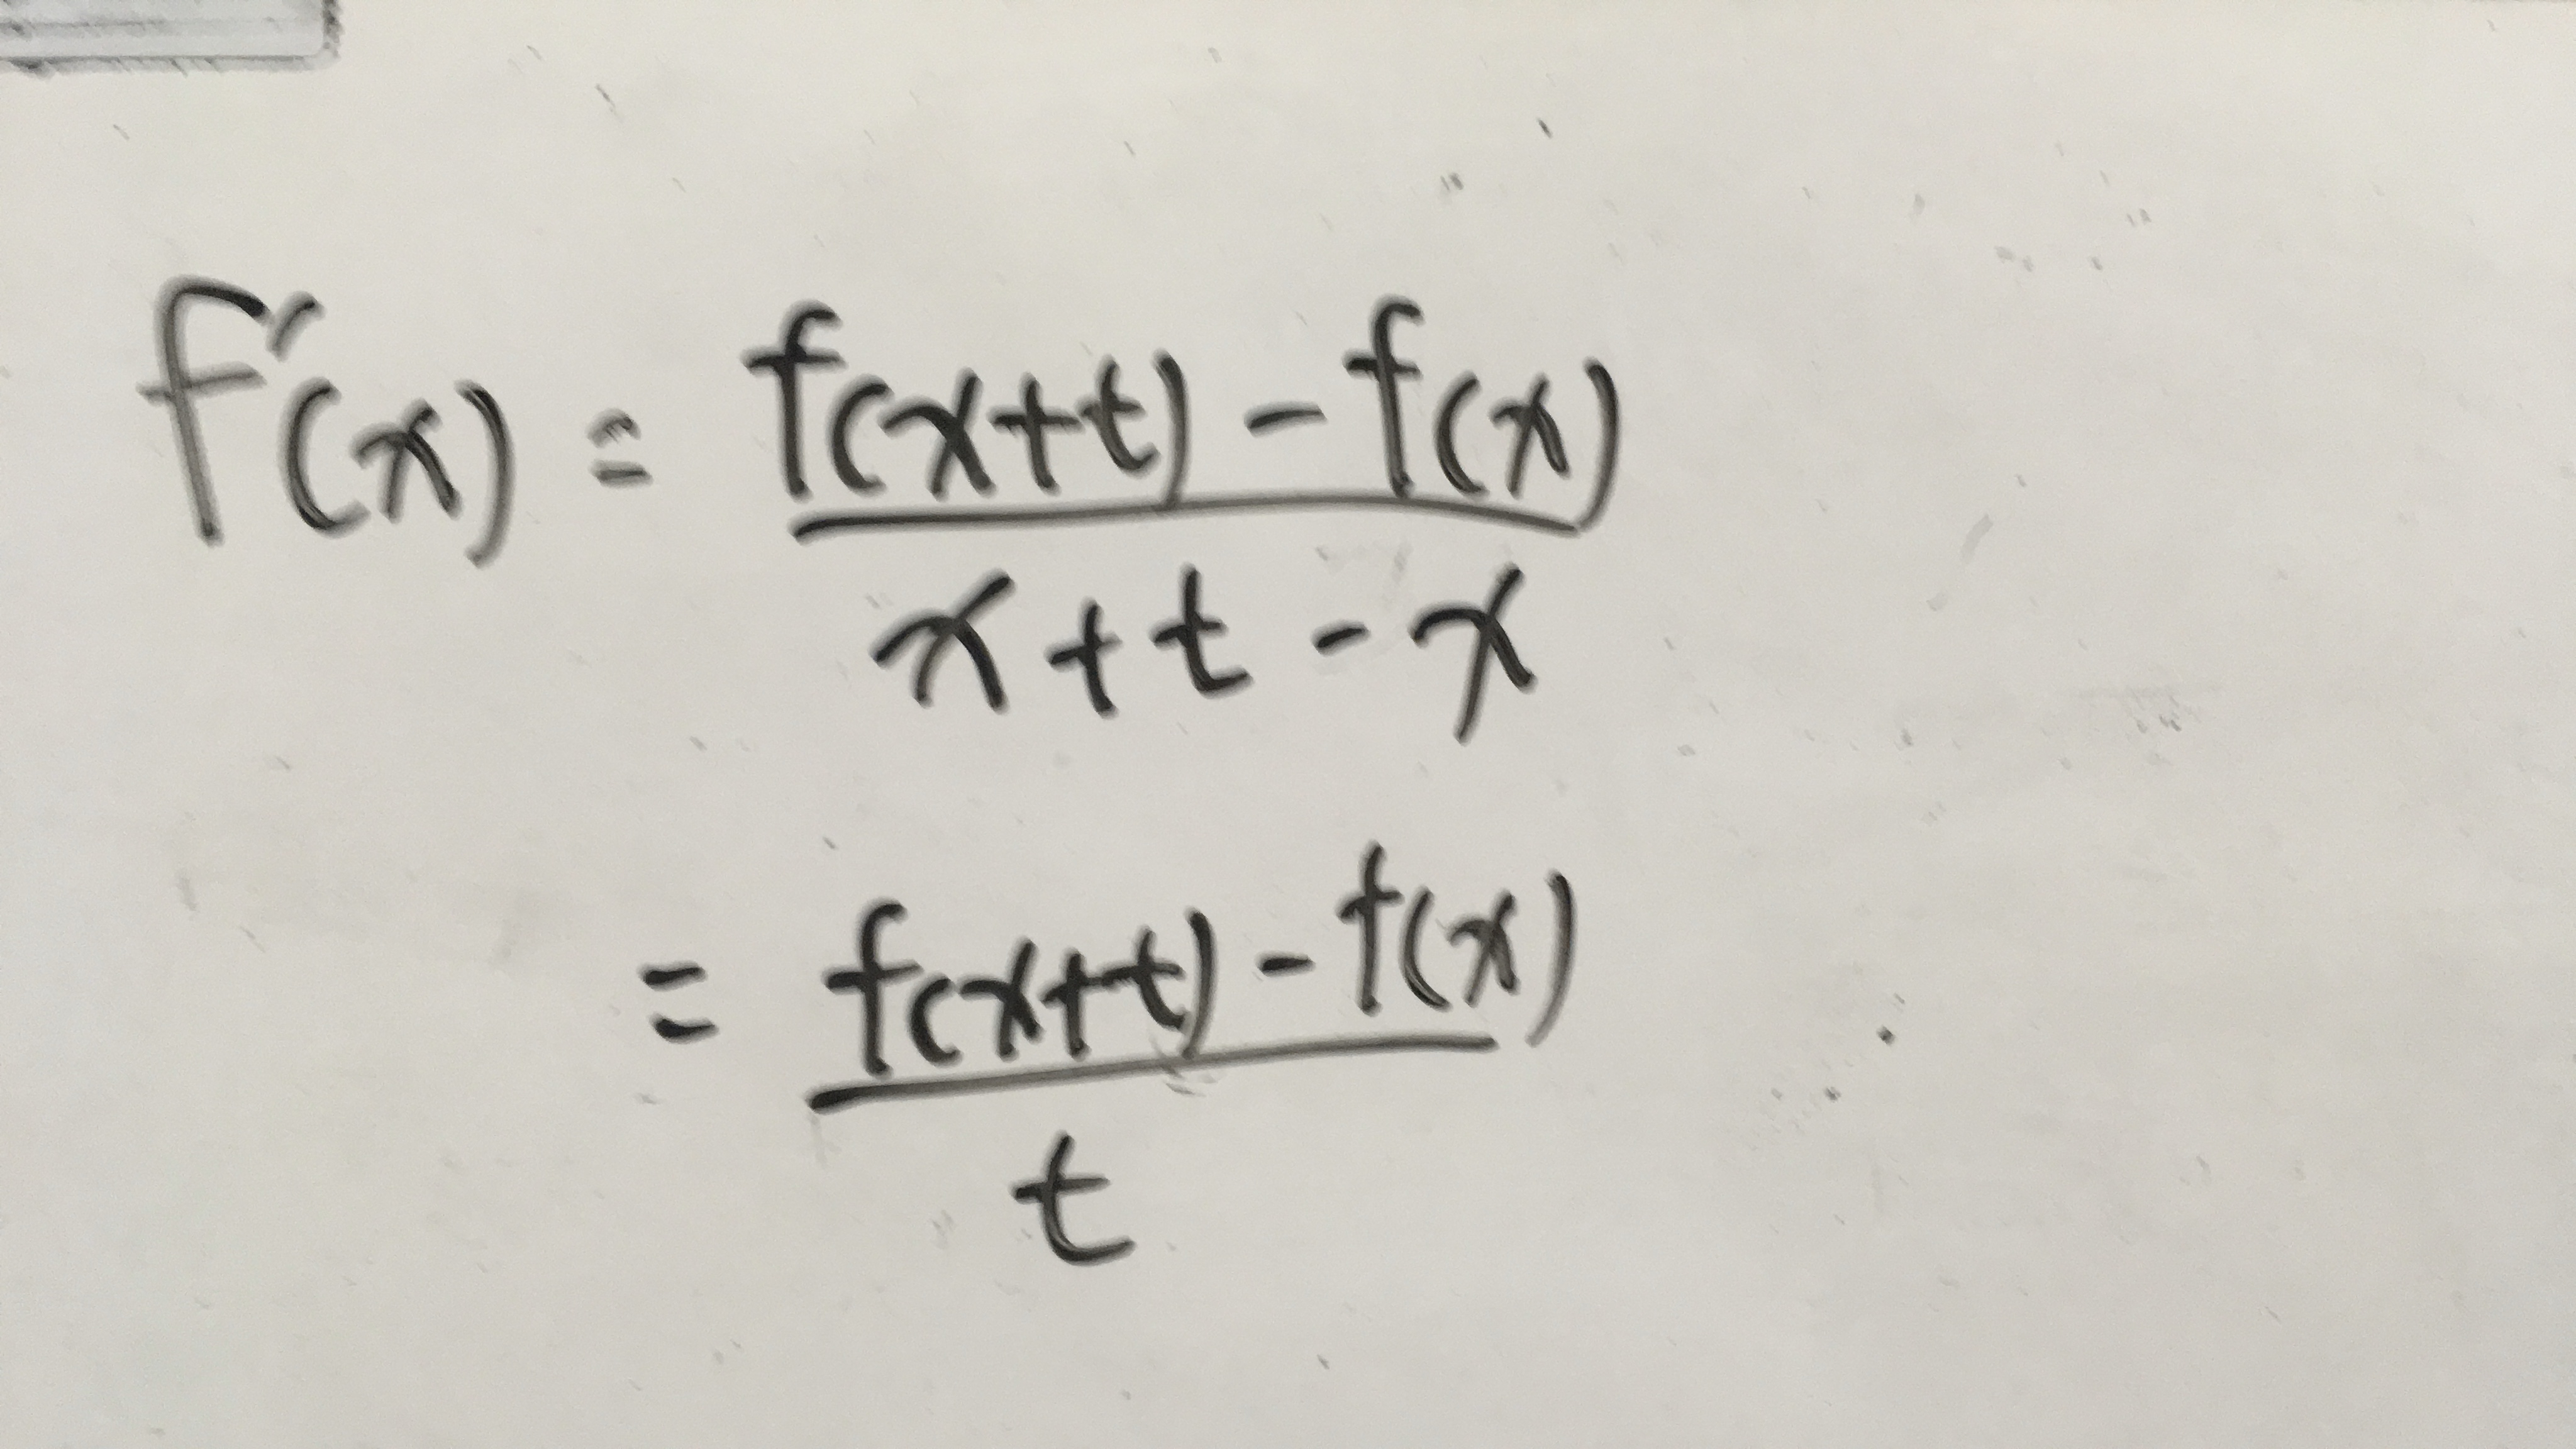 f'(x) = \frac{f(x+t) - f(x)}{x+t-x}
= \frac{f(x+t) - f(x)}{t}